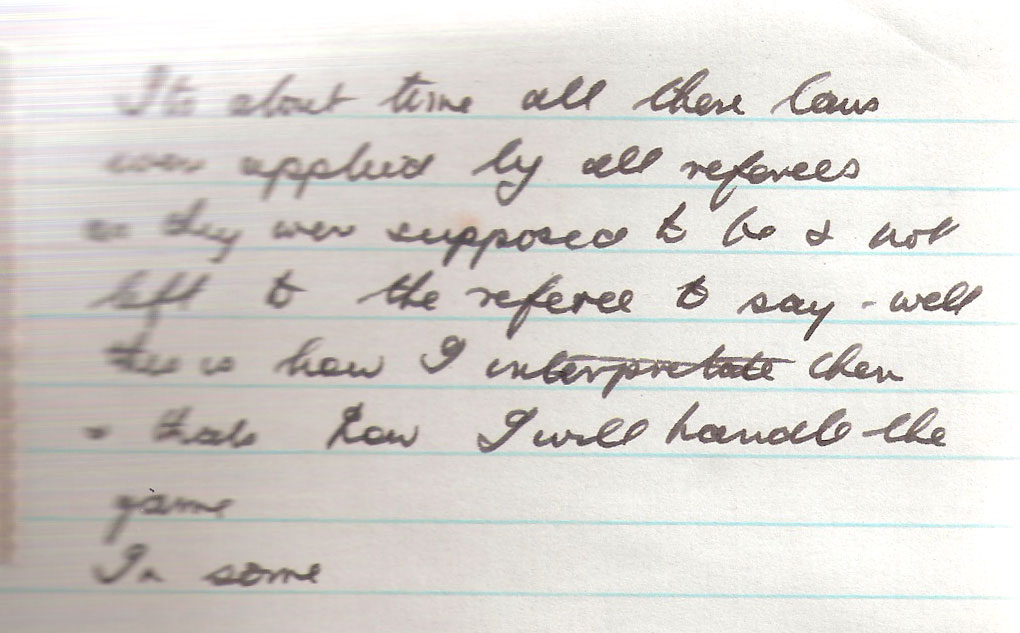 Its about time all these laws
were applied by all referees
as they were supposed to be & not
left to the referee to say - well
this is how I interpretate them
& thats how I will handle the
game
In some